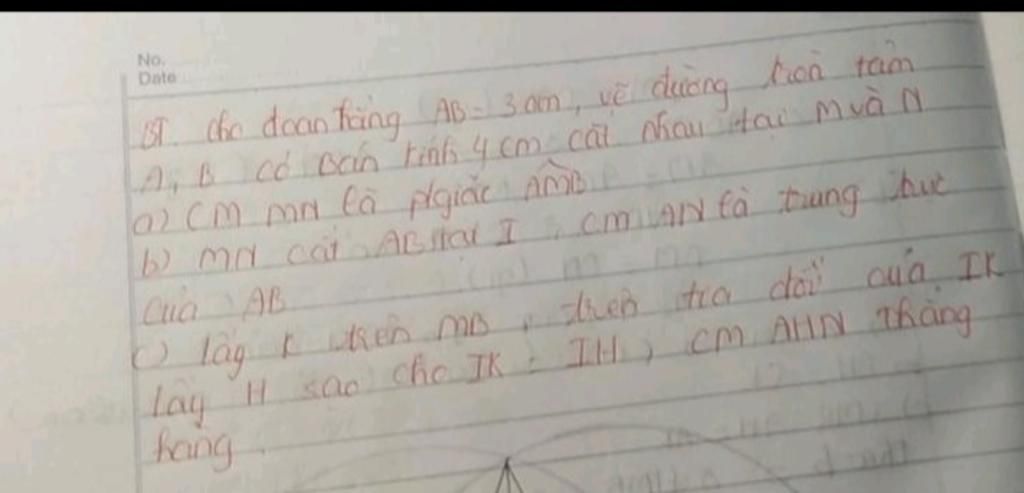 No.
Date
BT. Cho đoan thẳng AB = 3 cm, vẽ đường tròn tâm
A, B có bán kính 4 cm cắt nhau tại M và N
a) CM MN là pgiác AMB
b) MN cắt AB tại I, CM AN là trung trực
của AB
c) lấy K trên MB, trên tia đối của IK
lấy H sao cho IK = IH, CM AHN thẳng
hàng